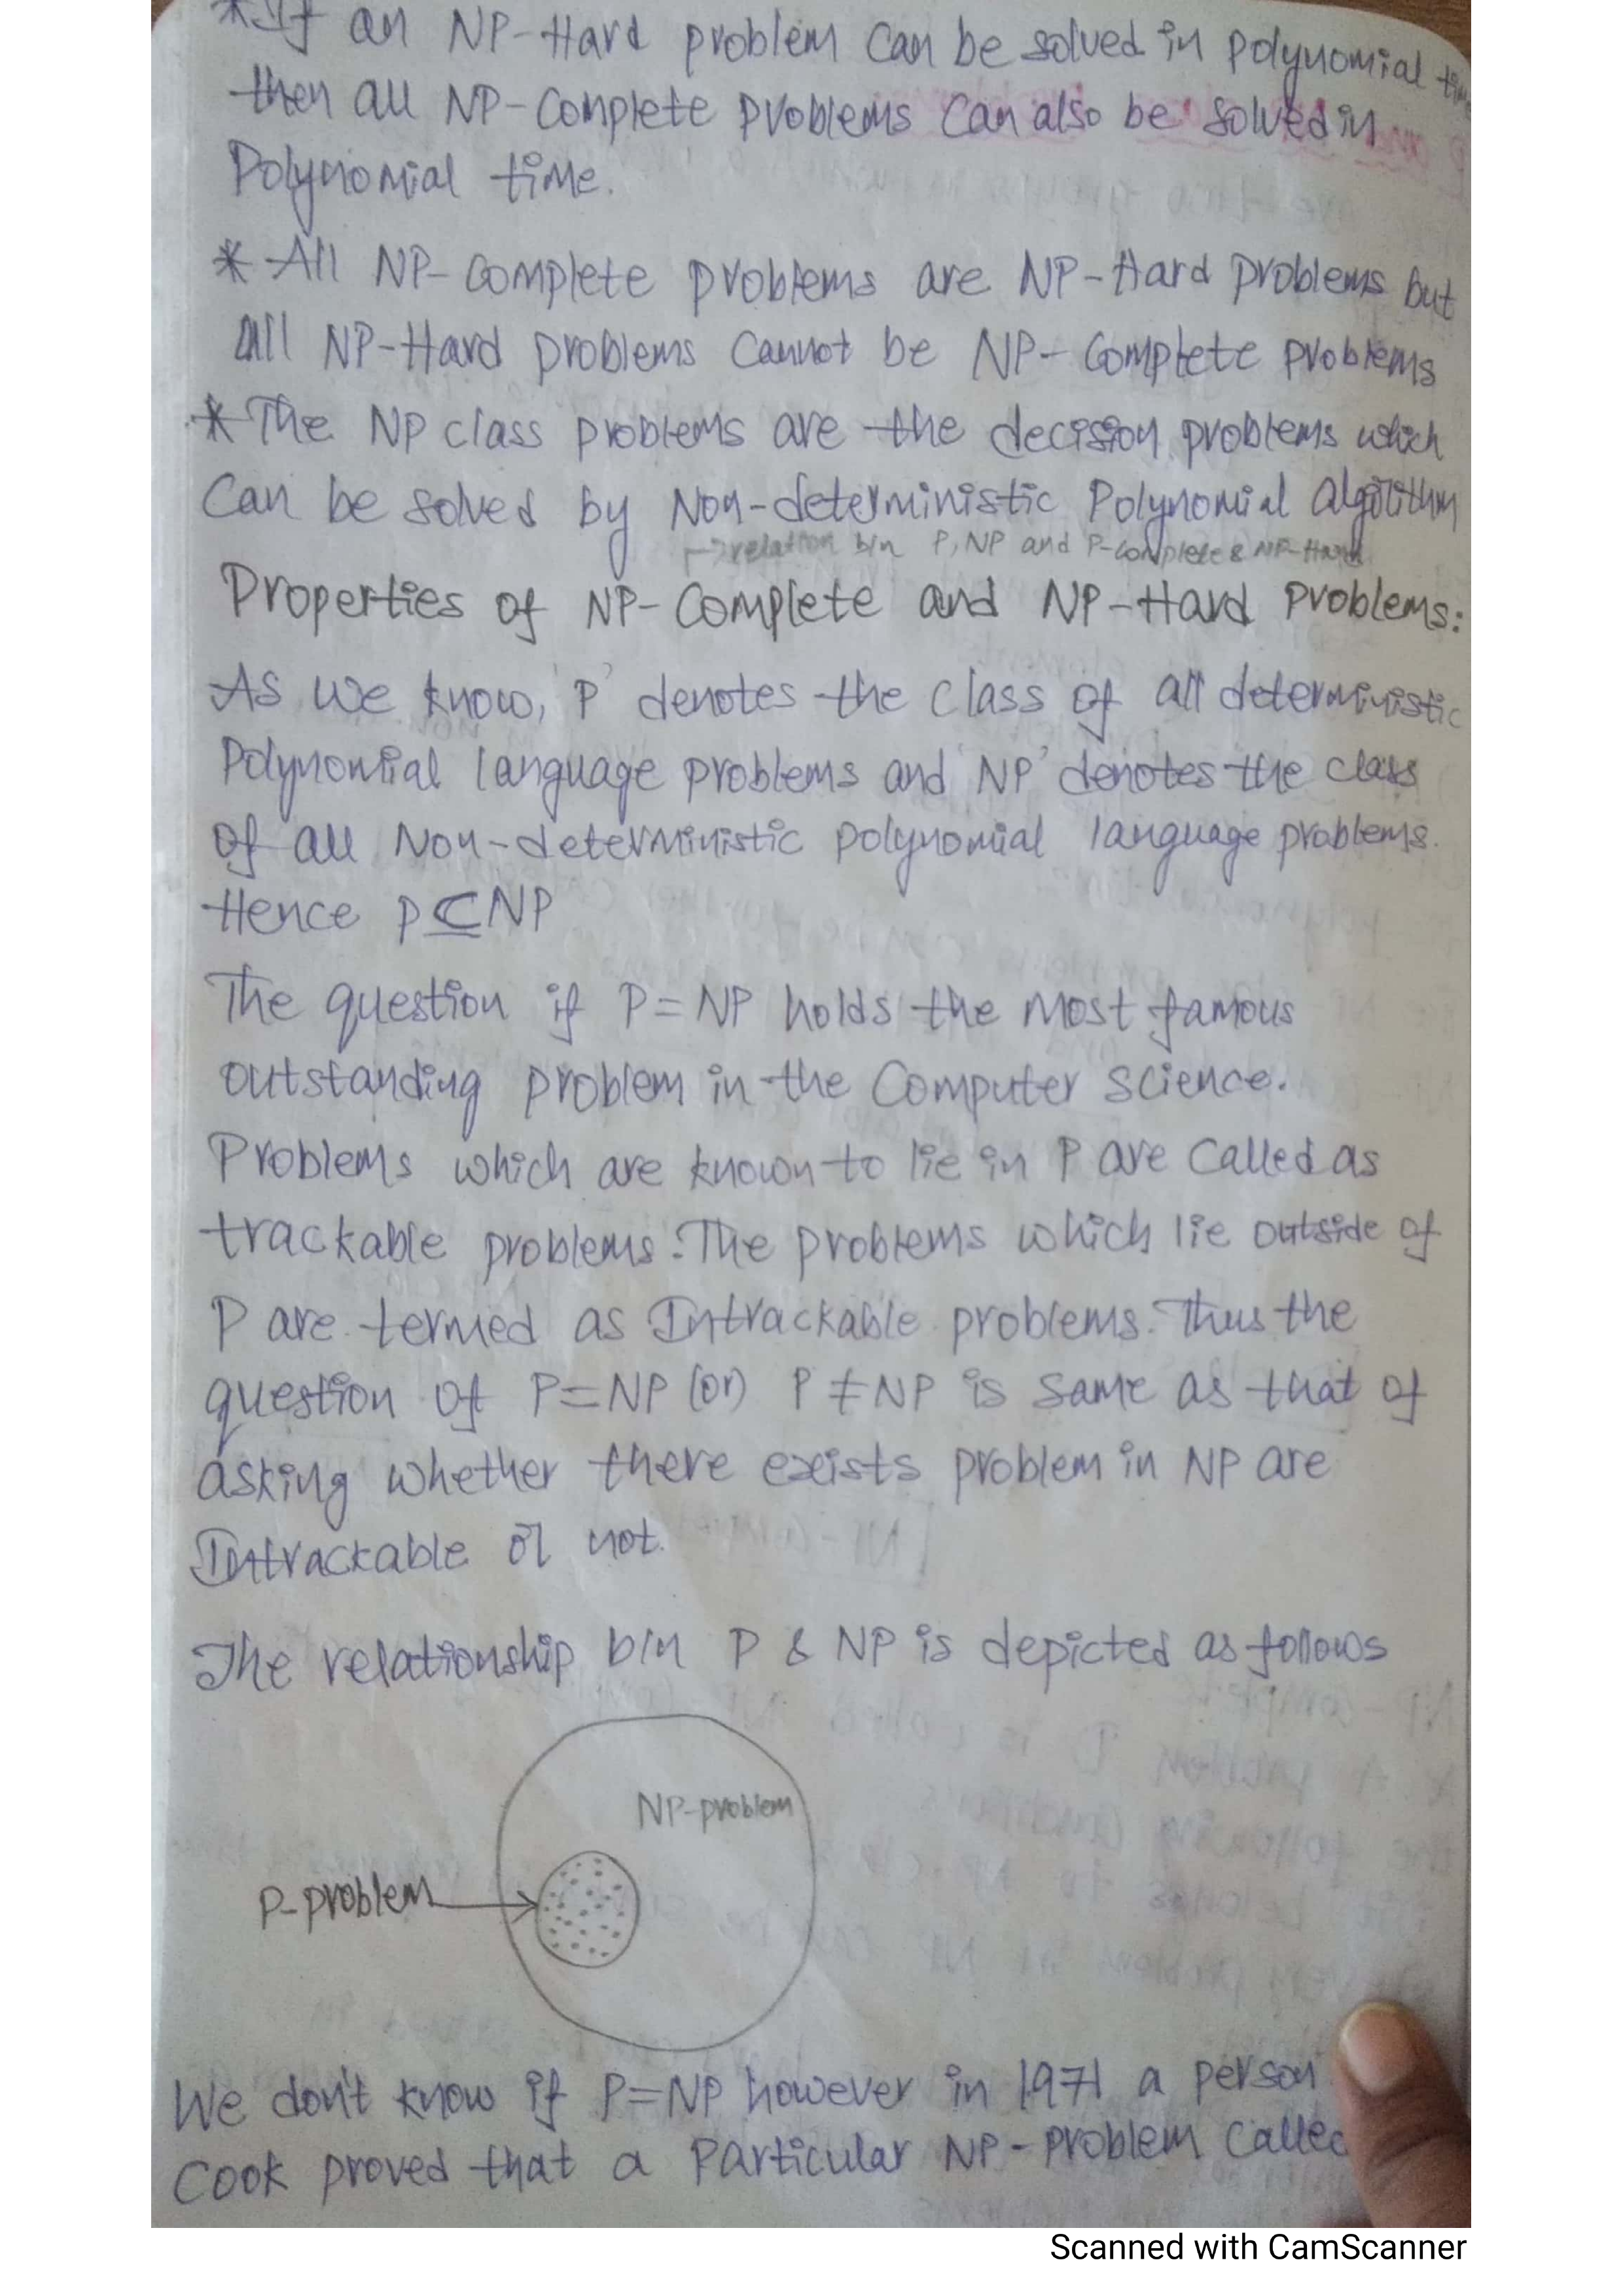 *If an NP-Hard problem can be solved in polynomial time
then all NP-Complete problems can also be solved in
Polynomial time.
* All NP-Complete problems are NP-Hard problems but
all NP-Hard problems cannot be NP-Complete problems
* The NP class problems are the decision problems which
Can be solved by Non-deterministic Polynomial algorithm
→ relation b/n P, NP and P-complete & NP-Hard
Properties of NP-Complete and NP-Hard Problems:
As we know, 'P' denotes the class of all deterministic
Polynomial language problems and 'NP' denotes the class
of all Non-deterministic polynomial language problems.
Hence P⊆NP
The question if P=NP holds the most famous
outstanding problem in the Computer Science.
Problems which are known to lie in P are called as
trackable problems. The problems which lie outside of
P are termed as Intrackable problems. Thus the
question of P=NP (or) P≠NP is same as that of
asking whether there exists problem in NP are
Intrackable or not.
The relationship b/n P & NP is depicted as follows
NP-problem
P-problem
We don't know if P=NP however in 1971 a person
Cook proved that a Particular NP-problem called
Scanned with CamScanner